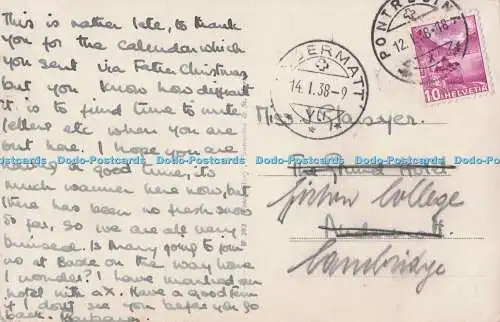 This is rather late, to thank
you for the calendar which
you sent via Father Christmas
but you know how difficult
it is to find time to write
letters etc when you are
out here. I hope you are
having a good time, its
much warmer here now, but
there has been no fresh snow
so far, so we are all very
bruised. Is Mary going to join
us at Basle on the way home
I wonder? I have marked our
hotel with a X. Have a good term
if I don't see you before you go
back. Barbara
PONTRESINA
12. 38-18
10 HELVETIA
ANDERMATT
14.1.38-9
Miss Glasyer.
The Grand Hotel
Girton College
Andermatt
Cambridge
Dodo Postcards Dodo Postcards Dodo Postcards Dodo Postcards Dodo Postcards Dodo Postcards